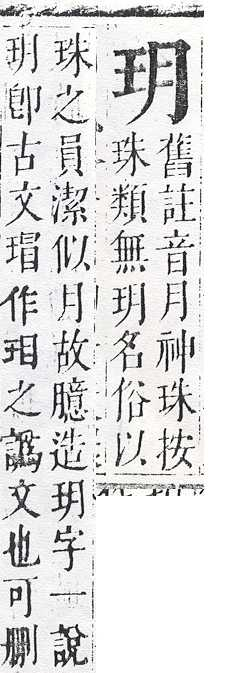 玥
舊註音月神珠按
珠類無玥名俗以
珠之員潔似月故臆造玥字一說
玥卽古文瑁作珇之譌文也可刪